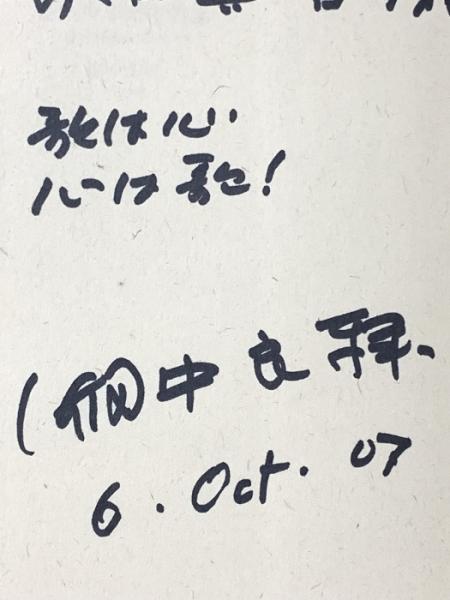 歌は心
心は歌!
(畑中良輔
6. Oct. 07